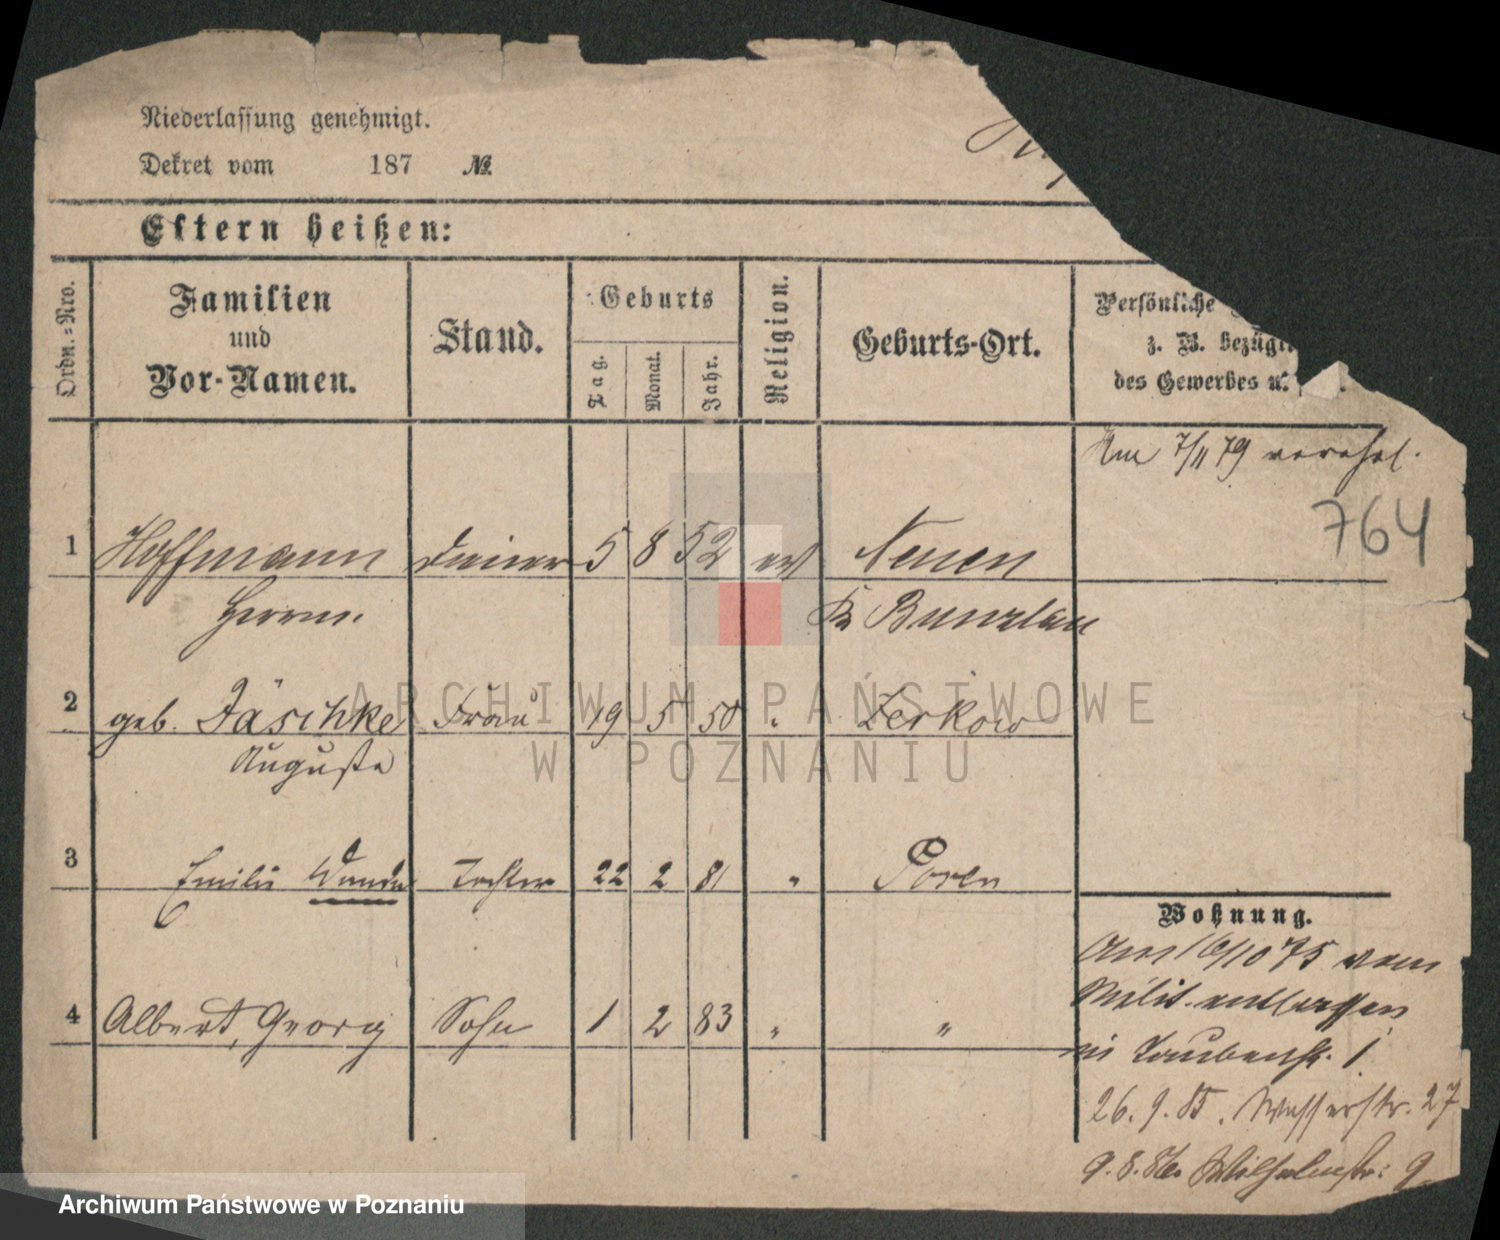 Niederlassung genehmigt.
Dekret vom 187 №
Eltern heißen:
Ordn.-Nro.
Familien
und
Vor-Namen.
Stand.
Geburts
Tag.
Monat.
Jahr.
Religion.
Geburts-Ort.
Persönliche
z. B. bezügl.
des Gewerbes u.
Am 7/11 79 verehel.
764
1 Hoffmann Diener 5 8 52 ev Neuen
Herrm. Kr Bunzlau
2 geb. Jäschke Frau 19 5 50 " Zerkow
Auguste
3 Emilie Wanda Tochter 22 2 81 " Posen
Wohnung.
Am 16/10 75 vom
Milit. entlassen
in Taubenstr. 1
4 Albert, Georg Sohn 1 2 83 " "
26. 9. 85. Wasserstr. 27
9. 8. 86. Wilhelmstr: 9.
ARCHIWUM PAŃSTWOWE
W POZNANIU
Archiwum Państwowe w Poznaniu